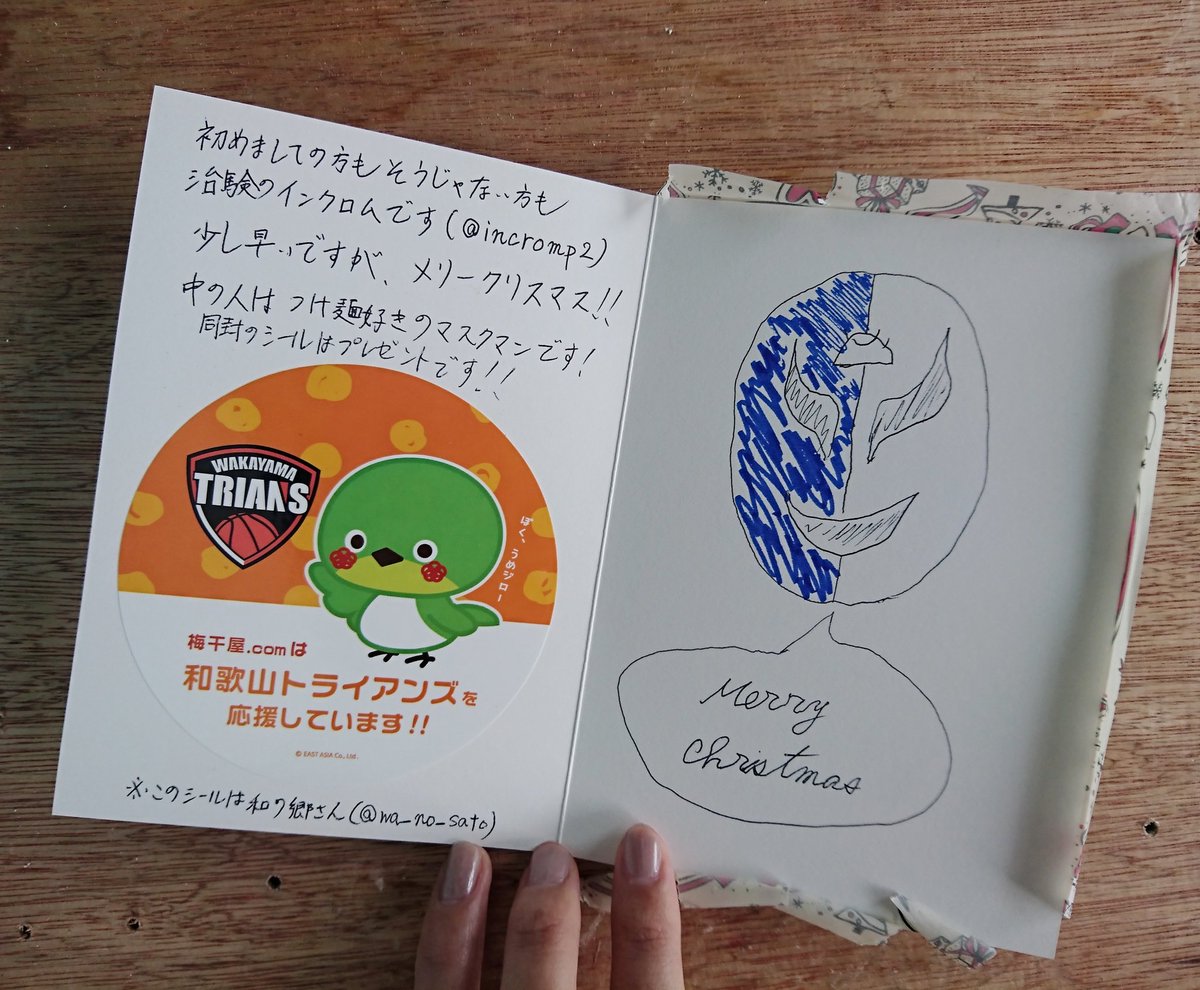 初めましての方もそうじゃない方も
治験のインクロムです(@incromp2)
少し早いですが、メリークリスマス!!
中の人は つけ麺好きのマスクマンです!
同封のシールはプレゼントです!!
WAKAYAMA
TRIANS
ぼく、うめジロー
梅干屋.comは
和歌山トライアンズを
応援しています!!
© EAST ASIA Co., Ltd.
※このシールは和ノ郷さん(@wa_no_sato)
Merry
Christmas